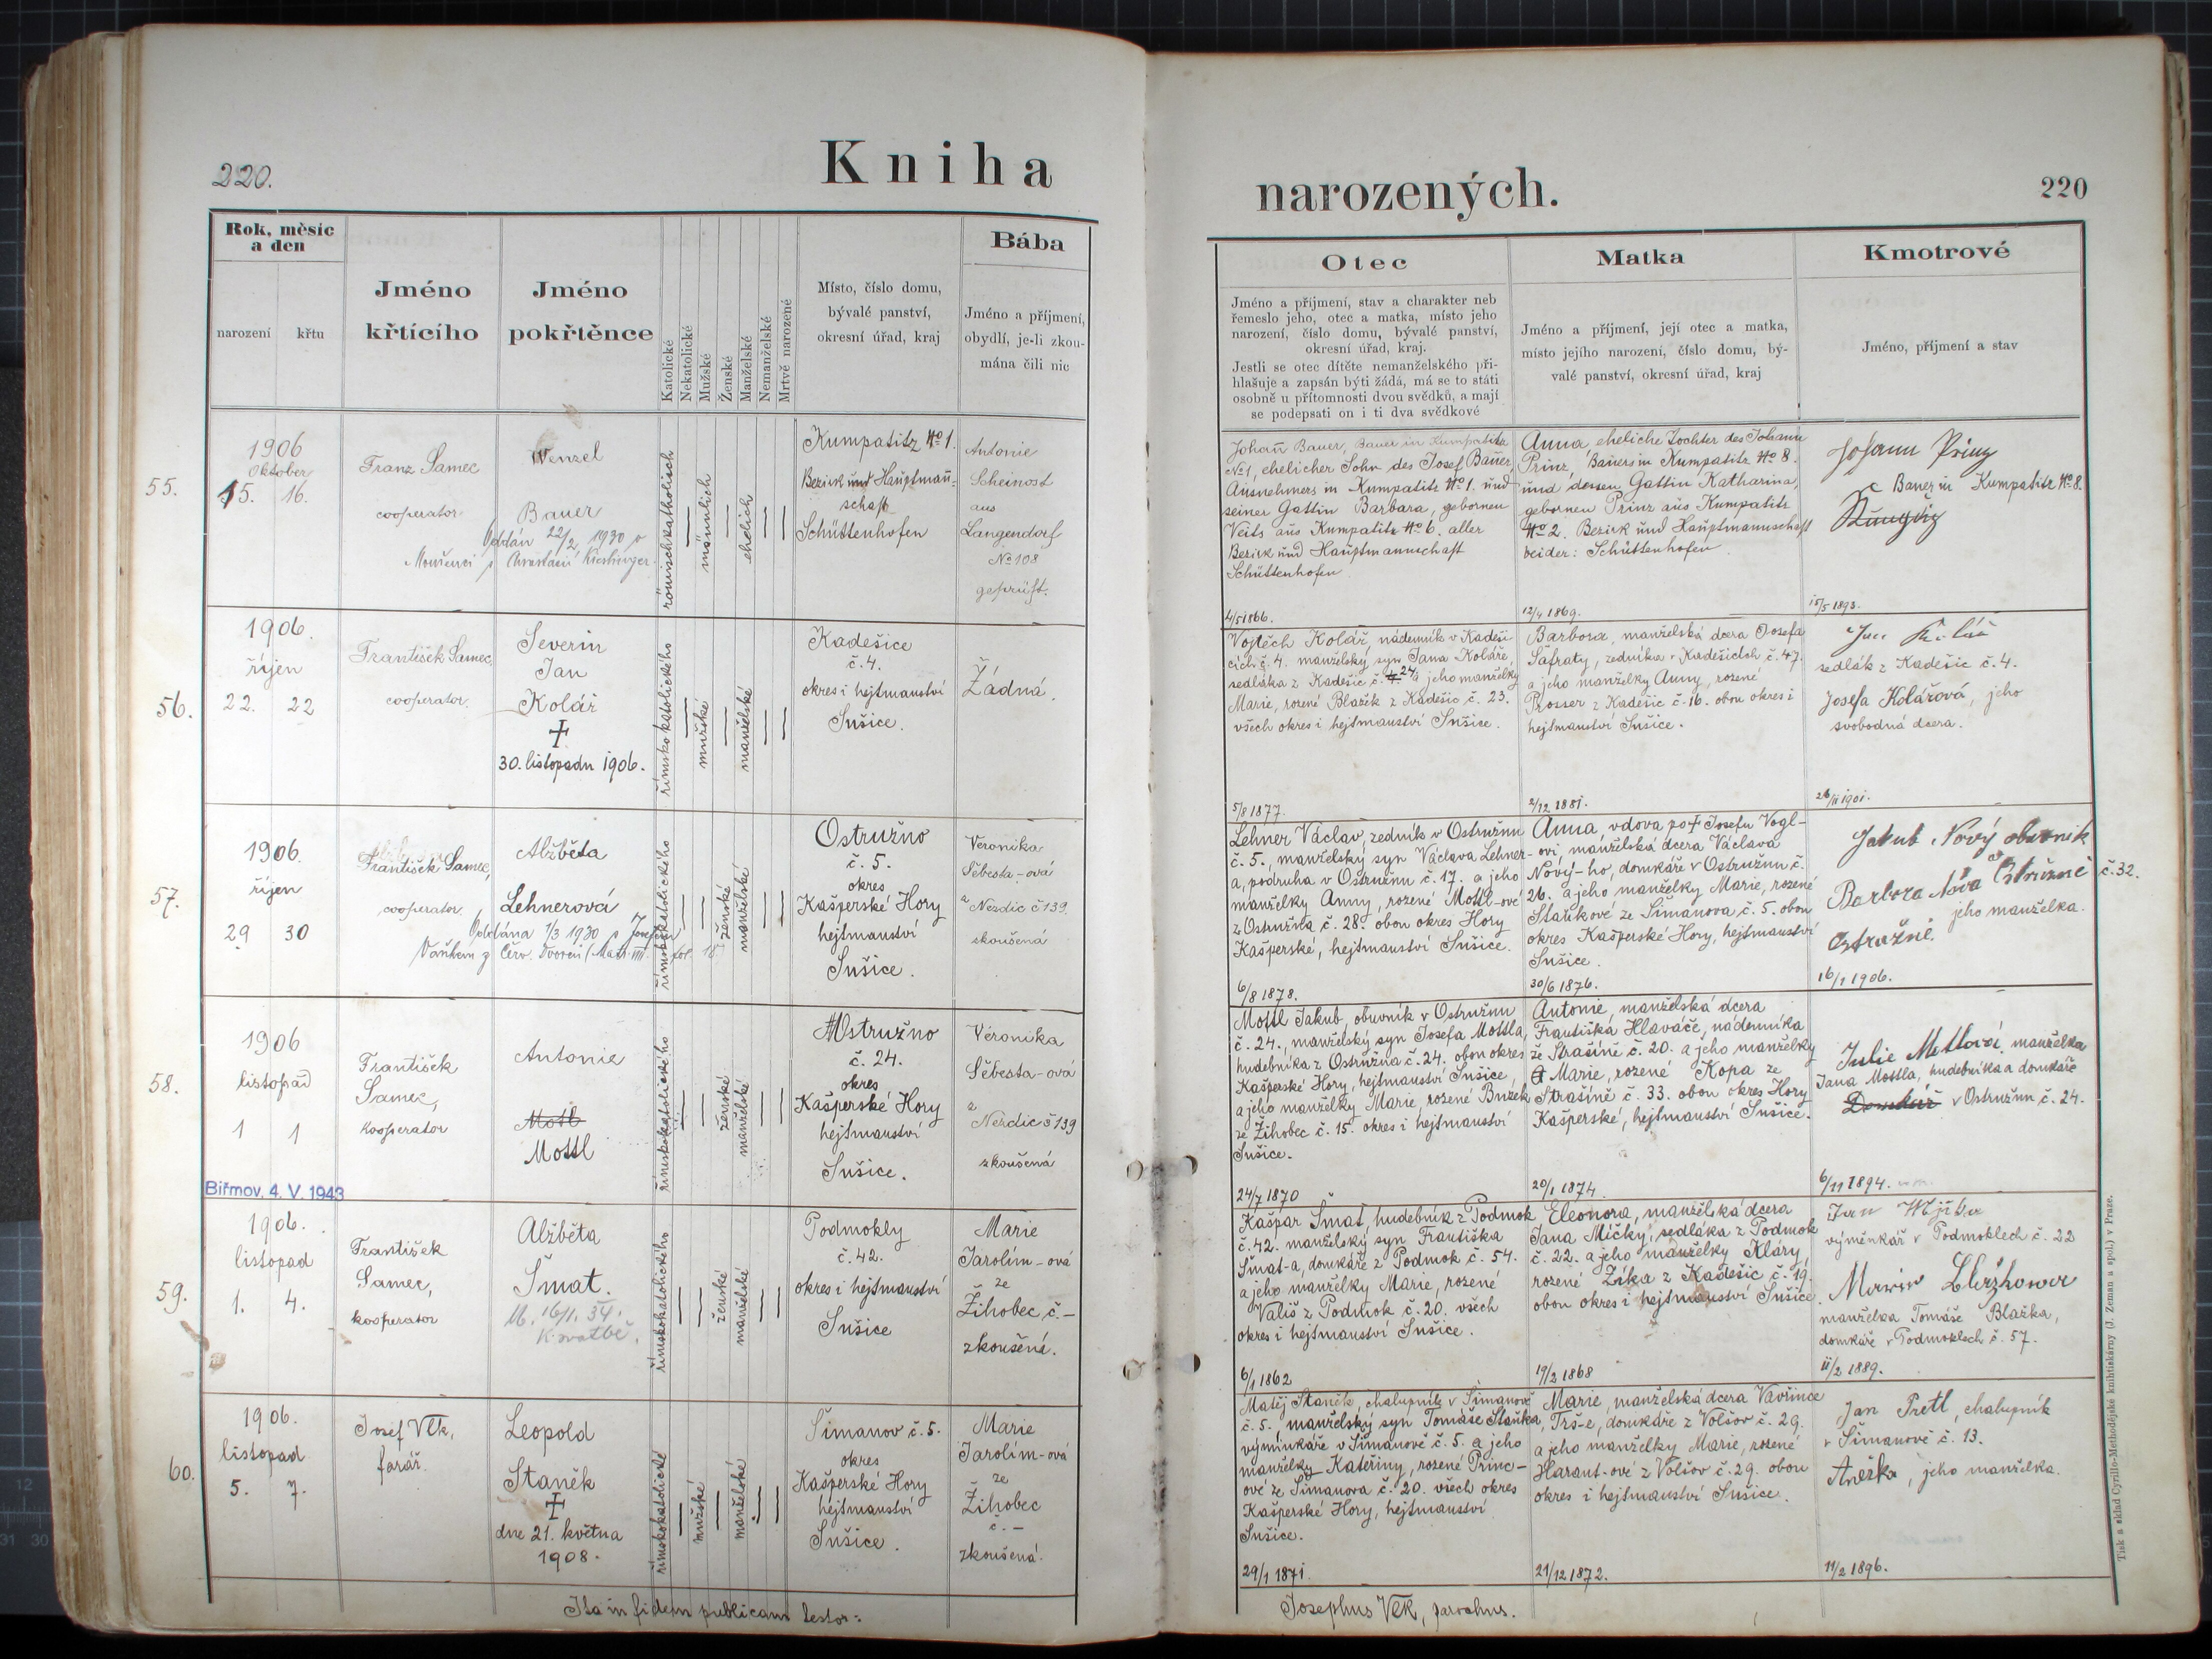 220.
Kniha
narozených.
220
Rok, měsíc
a den
narození
křtu
Jméno
křtícího
Jméno
pokřtěnce
Katolické
Nekatolické
Mužské
Ženské
Manželské
Nemanželské
Mrtvě narozené
Místo, číslo domu,
bývalé panství,
okresní úřad, kraj
Bába
Jméno a příjmení,
obydlí, je-li zkou-
mána čili nic
Otec
Jméno a přijmení, stav a charakter neb
řemeslo jeho, otec a matka, místo jeho
narození, číslo domu, bývalé panství,
okresní úřad, kraj.
Jestli se otec dítěte nemanželského při-
hlašuje a zapsán býti žádá, má se to státi
osobně u přítomnosti dvou svědků, a mají
se podepsati on i ti dva svědkové
Matka
Jméno a příjmení, její otec a matka,
místo jejího narození, číslo domu, bý-
valé panství, okresní úřad, kraj
Kmotrové
Jméno, příjmení a stav
55.
1906
Oktober
15. 16.
Franz Samec
cooperator
Wenzel
Bauer
Oddán 22/2 1930 v
römischkatholisch
männlich
ehelich
Kumpatitz No 1.
Bezirk und Hauptmann-
schaft
Schüttenhofen
Antonie
Scheinost
aus
Langendorf
No 108
geprüft.
Johann Bauer, Bauer in Kumpatitz
No 1, ehelicher Sohn des Josef Bauer,
Ausnehmers in Kumpatitz No 1. und
seiner Gattin Barbara, gebornen
Veits aus Kumpatitz No 6. aller
Bezirk und Hauptmannschaft
Schüttenhofen
4/5 1866.
Anna, eheliche Tochter des Johann
Prinz, Bauers in Kumpatitz No 8.
und dessen Gattin Katharina,
gebornen Prinz aus Kumpatitz
No 2. Bezirk und Hauptmannschaft
beider: Schüttenhofen.
12/4 1869.
Johann Prinz
Bauer in Kumpatitz No 8.
15/5 1893.
56.
1906.
říjen
22. 22
František Samec,
cooperator
Severin
Jan
Kolář
†
30. listopadu 1906.
římsko katolického
mužské
manželské
Kadešice
č. 4.
okres i hejtmanství
Sušice.
Žádná.
Vojtěch Kolář, nádenník v Kadeši-
cích č. 4. manželský syn Jana Koláře,
sedláka z Kadešic č. 4 24 a jeho manželky
Marie, rozené Blažek z Kadešic č. 23.
všech okres i hejtmanství Sušice.
5/8 1877.
Barbora, manželská dcera Josefa
Šafraty, zedníka v Kadešicích č. 47.
a jeho manželky Anny, rozené
Prosser z Kadešic č. 16. obou okres i
hejtmanství Sušice.
2/12 1881.
Jan Kolář
sedlák z Kadešic č. 4.
Josefa Kolářová, jeho
svobodná dcera.
26/11 1901.
57.
1906.
říjen
29 30
František Samec,
cooperator
Alžběta
Lehnerová
Oddána 1/3 1930 s Josefem
Vaňkem z Červ. Dvorců (Matr. VIII. fol. 18)
římskokatolického
ženské
manželské
Ostružno
č. 5.
okres
Kašperské Hory
hejtmanství
Sušice.
Veronika
Šebesta-ová
z Nezdic č 139.
zkoušená
Lehner Václav, zedník v Ostružnu
č. 5., manželský syn Václava Lehner-
a, podruha v Ostružnu č. 17. a jeho
manželky Anny, rozené Mottl-ové
z Ostružna č. 28. obou okres Hory
Kašperské, hejtmanství Sušice.
6/8 1878.
Anna, vdova po † Josefu Vogl-
ovi, manželská dcera Václava
Nový-ho, domkáře v Ostružnu č.
26. a jeho manželky Marie, rozené
Staňkové ze Šimanova č. 5. obou
okres Kašperské Hory, hejtmanství
Sušice.
30/6 1876.
Jakub Nový obuvník
Ostružně č. 32.
Barbora Nová
jeho manželka.
Ostružně.
16/1 1906.
58.
1906
listopad
1 1
František
Samec,
kooperator
Biřmov. 4. V. 1943
Antonie
Mottl
Mottl
římskokatolického
ženské
manželské
Ostružno
č. 24.
okres
Kašperské Hory
hejtmanství
Sušice.
Veronika
Šebesta-ová
z
Nezdic č 139
zkoušená
Mottl Jakub, obuvník v Ostružnu
č. 24., manželský syn Josefa Mottla,
hudebníka z Ostružna č. 24. obou okres
Kašperské Hory, hejtmanství Sušice,
a jeho manželky Marie, rozené Bružek
ze Žihobec č. 15. okres i hejtmanství
Sušice.
24/7 1870
Antonie, manželská dcera
Františka Hlaváče, nádenníka
ze Strašíně č. 20. a jeho manželky
Marie, rozené Kopa ze
Strašíně č. 33. obou okres Hory
Kašperské, hejtmanství Sušice.
20/1 1874.
Julie Mottlová, manželka
Jana Mottla, hudebníka a domkáře
Domkář v Ostružnu č. 24.
6/11 1894.
59.
1906.
listopad
1. 4.
František
Samec,
kooperator
Alžběta
Šmat.
16/1. 34.
K svatbě.
římskokatolického
ženské
manželské
Podmokly
č. 42.
okres i hejtmanství
Sušice
Marie
Jarolím-ová
ze
Žihobec č. –
zkoušená.
Kašpar Šmat, hudebník z Podmok
č. 42. manželský syn Františka
Šmat-a, domkáře z Podmok č. 54.
a jeho manželky Marie, rozené
Vališ z Podmok č. 20. všech
okres i hejtmanství Sušice.
6/1 1862
Eleonora, manželská dcera
Jana Míčky, sedláka z Podmok
č. 22. a jeho manželky Kláry,
rozené Zíka z Kadešic č. 19.
obou okres i hejtmanství Sušice.
19/2 1868
Jan
výměnkář v Podmoklech č. 22
manželka Tomáše Blažka,
domkáře v Podmoklech č. 57.
11/2 1889.
60.
1906.
listopad
5. 7.
Josef Vlk,
farář.
Leopold
Staněk
†
dne 21. května
1908.
římskokatolické
mužské
manželské
Šimanov č. 5.
okres
Kašperské Hory
hejtmanství
Sušice.
Marie
Jarolím-ová
ze
Žihobec
č. –
zkoušená.
Matěj Staněk, chalupník v Šimanově
č. 5. manželský syn Tomáše Staňka,
výminkáře v Šimanově č. 5. a jeho
manželky Kateřiny, rozené Princ-
ové ze Šimanova č. 20. všech okres
Kašperské Hory, hejtmanství
Sušice.
29/1 1871.
Marie, manželská dcera Vavřince
Trš-e, domkáře z Volšov č. 29.
a jeho manželky Marie, rozené
Harant-ové z Volšov č. 29. obou
okres i hejtmanství Sušice.
21/12 1872.
Jan Pretl, chalupník
v Šimanově č. 13.
Anežka, jeho manželka.
11/2 1896.
Ita in fidem publicam testor:
Josephus Vlk, parochus.
Tisk a sklad Cyrillo-Methodějské knihtiskárny (J. Zeman a spol.) v Praze.